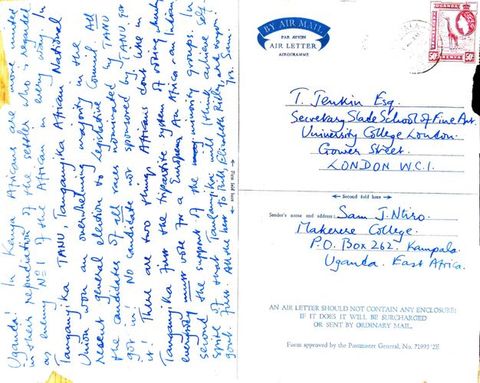 Uganda! In Kenya Africans are more violent
in their repudiation of the settler who is regarded
as enemy No 1 of the African in every way. In
Tanganyika TANU, Tanganyika African National
Union won an overwhelming majority in the
recent general election to Legislative Council. All
the candidates of all races nominated by TANU
got in! No candidate not sponsored by TANU got
it! There are two things Africans don't like in
Tanganyika just the tripartite system of voting whereby
everybody must vote for a European, An African, an Indian
second the support of the minority groups. In
spite of that Tanganyika will I think achieve self
govt. first. All the best to Elizabeth Billy and
Yrs. Sam.
First fold here
BY AIR MAIL
PAR AVION
AIR LETTER
AEROGRAMME
T. Tenkin Esq.
Secretary Slade School of Fine Art
University College London.
Gower Street.
LONDON W.C.1.
Second fold here
Sender's name and address: Sam J. Ntiro
Makerere College.
P.O. Box 262. Kampala
Uganda. East Africa.
AN AIR LETTER SHOULD NOT CONTAIN ANY ENCLOSURE:
IF IT DOES IT WILL BE SURCHARGED
OR SENT BY ORDINARY MAIL.
Form approved by the Postmaster General, No.
50c
50c